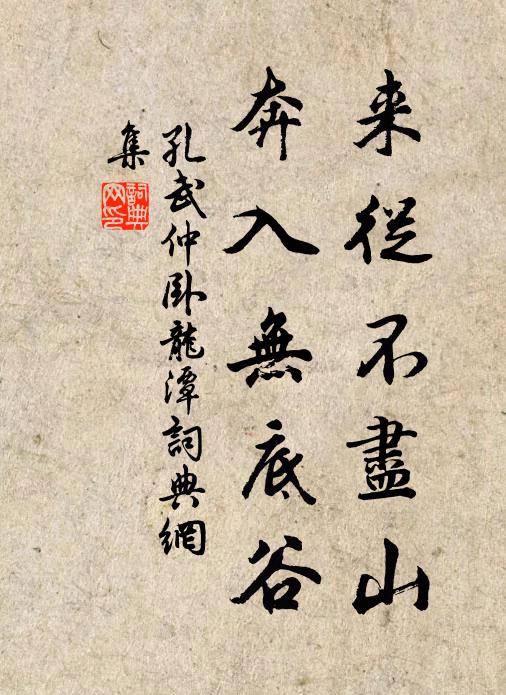 来從不盡山
奔入無底谷
孔武仲卧龍潭詞典網
集
詞典網印